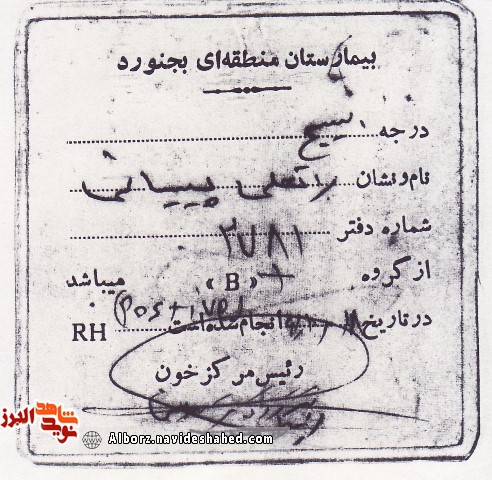 بیمارستان منطقه‌ای بجنورد
درجه بسیج
نام و نشان
شماره دفتر ۲۷۸۱
از گروه + « B » میباشد
در تاریخ انجام شده است
RH (Positive)
رئیس مرکز خون
شاهد
نوید
البرز
Alborz.navideshahed.com